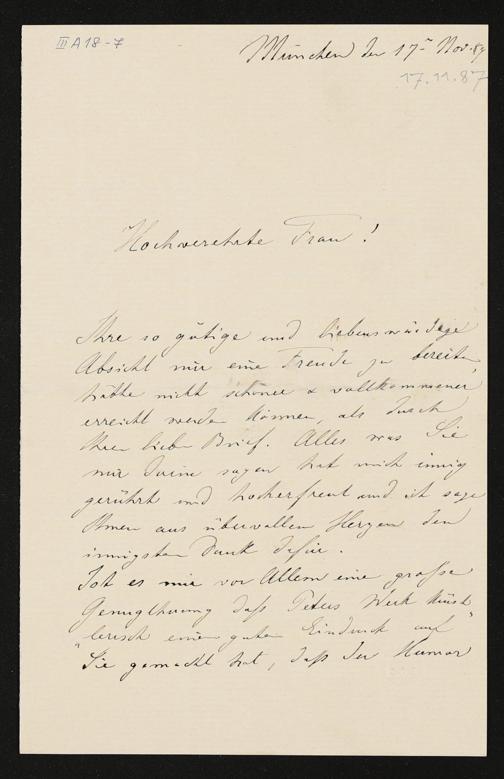 III A 18-7
München den 17ten Nov. 87
17.11.87
Hochverehrte Frau!
Ihre so gütige und liebenswürdige
Absicht mir eine Freude zu bereiten,
hätte nicht schöner & vollkommener
erreicht werden können, als durch
Ihren lieben Brief. Alles was Sie
mir darin sagen hat mich innig
gerührt und hocherfreut und ich sage
Ihnen aus übervollem Herzen den
innigsten Dank dafür.
Ist es mir vor Allem eine große
Genugthuung daß Peters Werk künst
lerisch einen guten Eindruck auf
Sie gemacht hat, daß der Humor